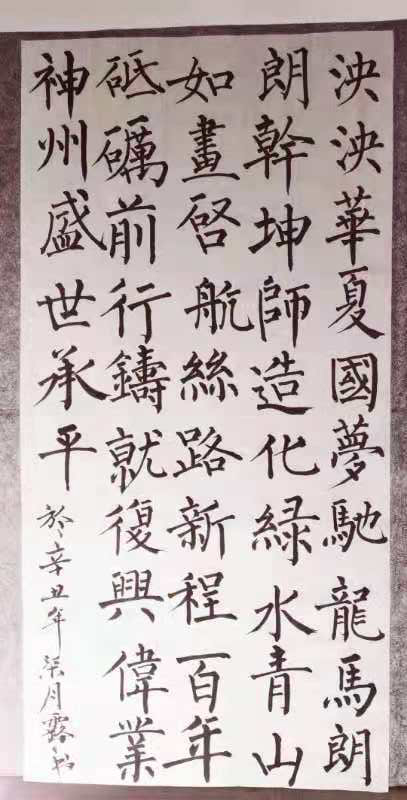 泱泱華夏國夢馳龍馬朗
朗幹坤師造化綠水青山
如畫啓航絲路新程百年
砥礪前行鑄就復興偉業
神州盛世承平
於辛丑年柒月露书